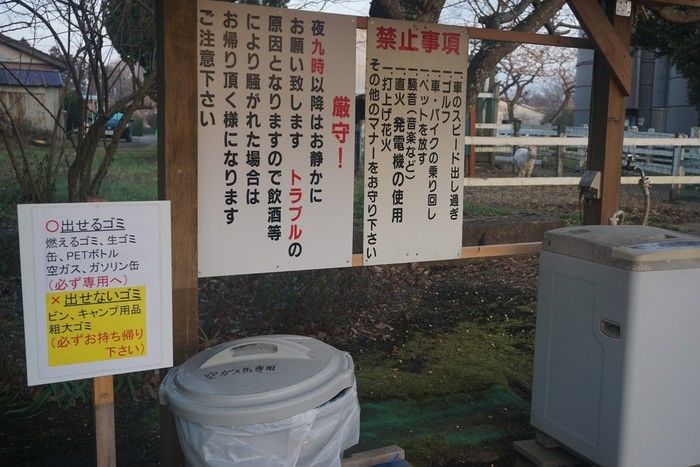 厳守！
夜九時以降はお静かに
お願い致します トラブルの
原因となりますので飲酒等
により騒がれた場合は
お帰り頂く様になります
ご注意下さい
禁止事項
一車のスピード出し過ぎ
一ゴルフ
一車・バイクの乗り回し
一ペットを放す
一騒音（音楽など）
一直火 発電機の使用
一打上げ花火
その他のマナーをお守り下さい
○出せるゴミ
燃えるゴミ、生ゴミ
缶、PETボトル
空ガス、ガソリン缶
（必ず専用へ）
×出せないゴミ
ビン、キャンプ用品
粗大ゴミ
（必ずお持ち帰り
下さい）
空ガス缶専用